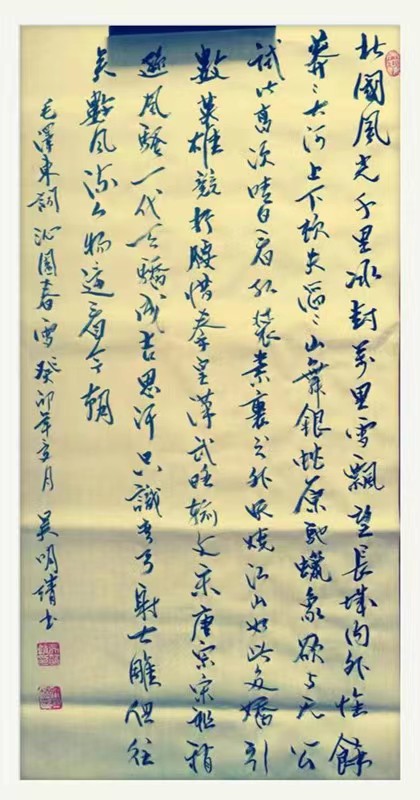 北國風光千里冰封萬里雪飄望長城内外惟餘
莽〻大河上下頓失滔〻山舞銀蛇原馳蠟象欲与天公
試比高須晴日看紅裝素裹分外妖嬈江山如此多嬌引
數英雄競折腰惜秦皇漢武略輸文采唐宗宋祖稍
遜風騷一代天驕成吉思汗只識弯弓射大雕俱往
矣數風流人物還看今朝
毛澤東詞沁園春雪癸卯年月吴明書